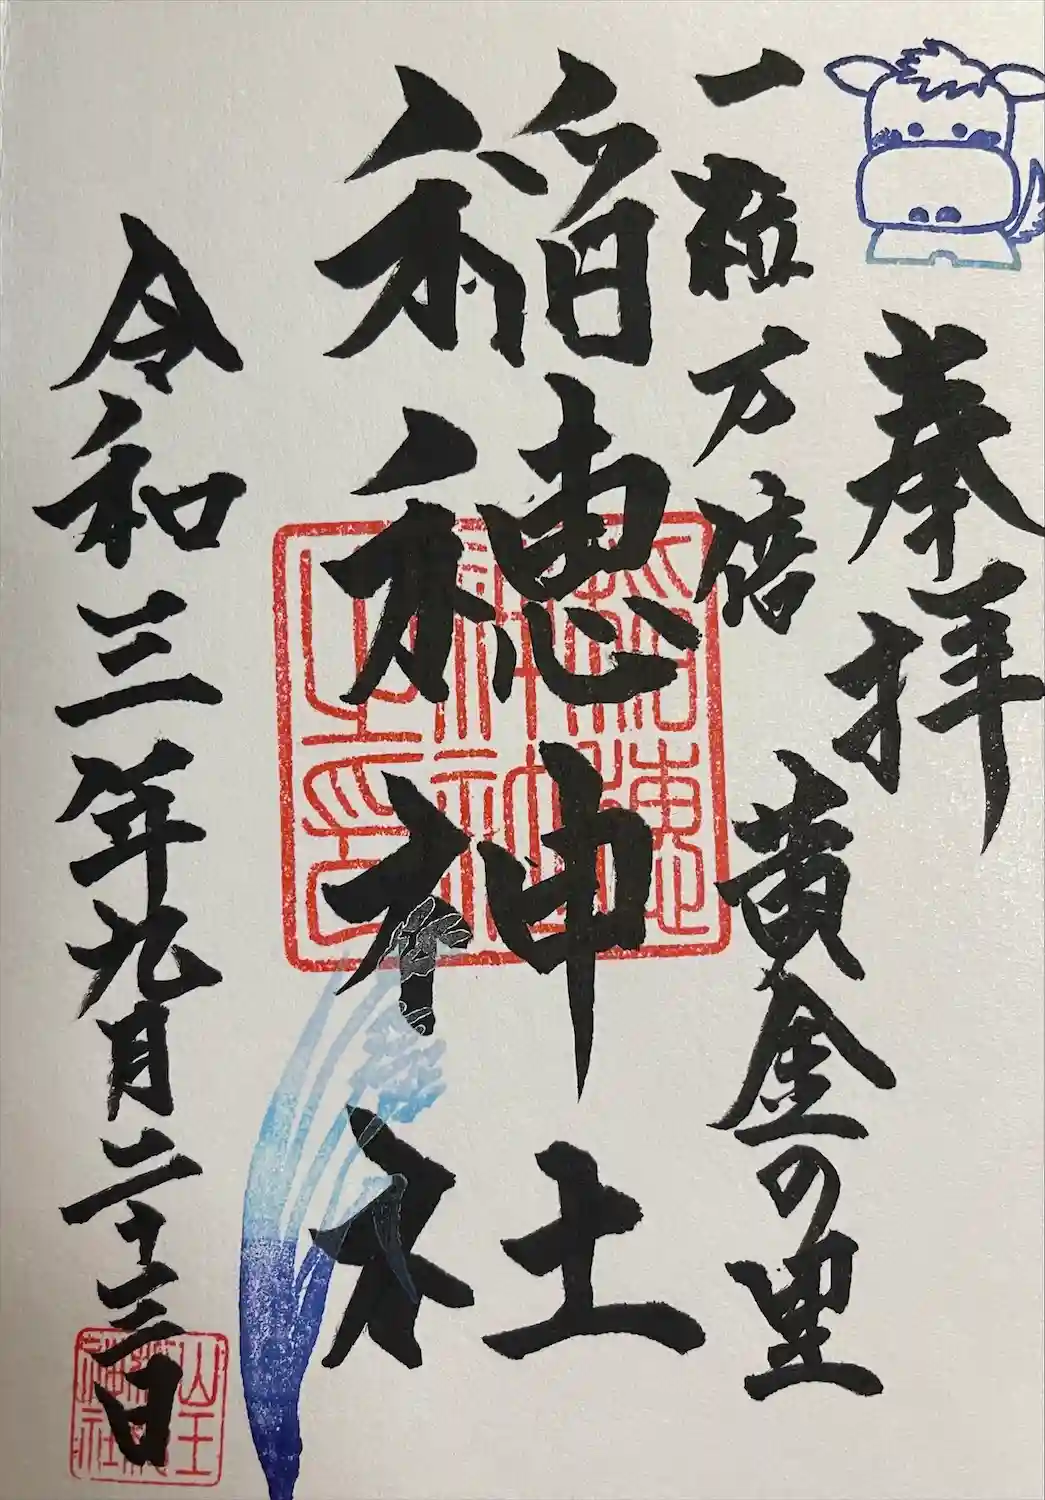 奉拝
一粒万倍 黄金の里
稲穂神社
令和三年九月二十三日
山王
神社